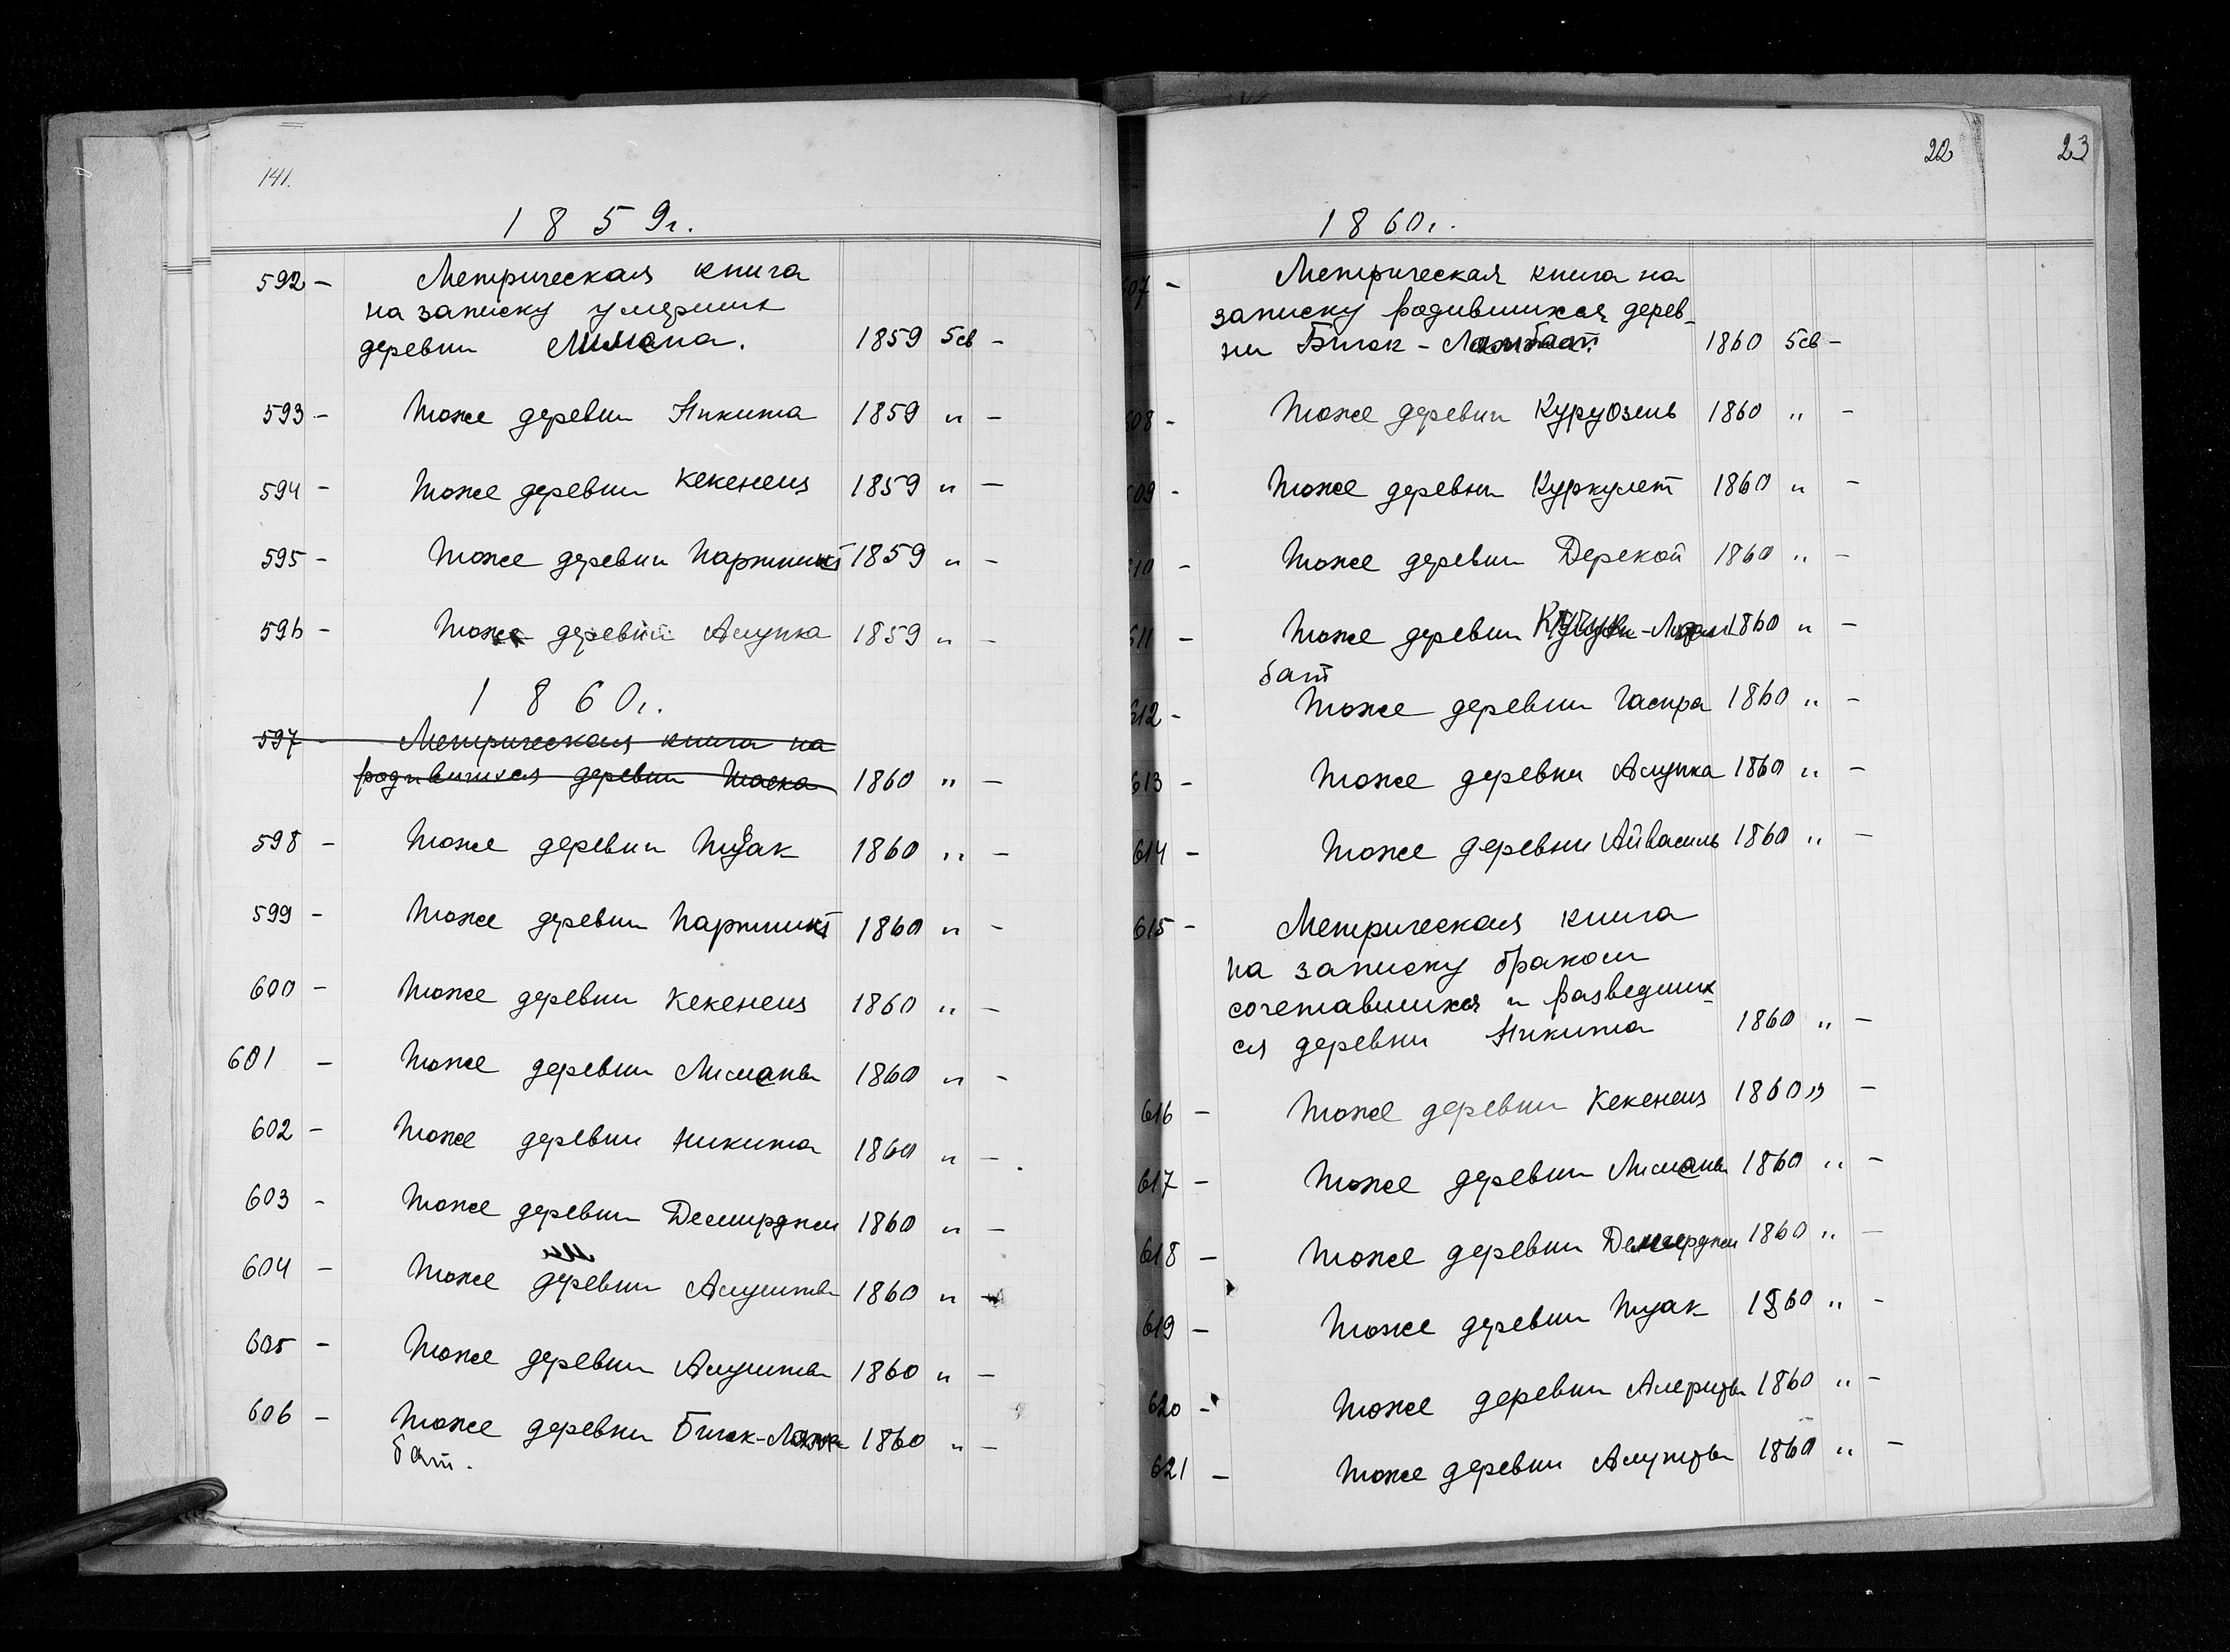 141.
1859г.
592 - Метрическая книга
на записку умерших
деревни Лимена. 1859 5св -
593 - Тоже деревни Никита 1859 " -
594 - Тоже деревни Кекенеиз 1859 " -
595 - Тоже деревни Партинит 1859 " -
596 - Тоже деревни Алупка 1859 " -
1860г.
597 - Метрическая книга на
родившихся деревни 1860 " -
598 - Тоже деревни Туак 1860 " -
599 - Тоже деревни Партинит 1860 " -
600 - Тоже деревни Кекенеиз 1860 " -
601 - Тоже деревни Лимены 1860 " -
602 - Тоже деревни Никита 1860 " -
603 - Тоже деревни Демирджи 1860 " -
604 - Тоже деревни Алушты 1860 " -
605 - Тоже деревни Алушты 1860 " -
606 - Тоже деревни Биюк-Лам 1860 " -
бат.
22
23
1860г.
607 - Метрическая книга на
записку родившихся дерев-
ни Биюк-Ламбат. 1860 5св -
608 - Тоже деревни Куруозень 1860 " -
609 - Тоже деревни Куркулет 1860 " -
610 - Тоже деревни Дерекой 1860 " -
611 - Тоже деревни Кучук-Лам 1860 " -
бат
612 - Тоже деревни Гаспра 1860 " -
613 - Тоже деревни Алупка 1860 " -
614 - Тоже деревни Айвасиль 1860 " -
615 - Метрическая книга
на записку браком
сочетавшихся и разведших
ся деревни Никита 1860 " -
616 - Тоже деревни Кекенеиз 1860 " -
617 - Тоже деревни Лимены 1860 " -
618 - Тоже деревни Демерджи 1860 " -
619 - Тоже деревни Туак 1860 " -
620 - Тоже деревни 1860 " -
621 - Тоже деревни 1860 " -